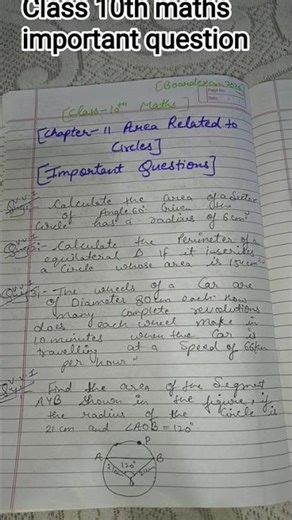 Class 10th maths
important question
[Class-10th Maths]
[Chapter-11 Area Related to
Circles]
[Important Questions]
Calculate the area of a
of Angle 60° Given the
Circle has a radius of 6cm
Calculate the Perimeter of a
equilateral Δ if it inscribes
a Circle whose area is 154cm²
The wheels of a Car are
of Diameter 80cm each. How
many complete revolutions
does each wheel make in
10 minutes when the car is
travelling at a Speed of 66km
per hour
Find the area of the Segment
AYB shown in the figure, if
the radius of the Circle is
21 cm and ∠AOB = 120°
P
A B
120°